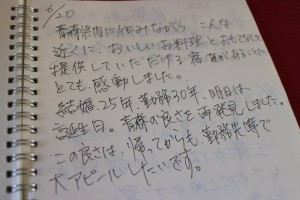 6/20
青森県内に住みながら、こんな
近くに、おいしいお料理とおもてなしを
提供していただける店があることに
とても感動しました。
結婚25年勤務30年、明日は
誕生日。青森の良さを再発見しました。
この良さは、帰ってからも、勤務先等で
大アピールしたいです。